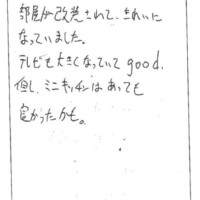 部屋が改装されて、きれいに
なっていました。
テレビも大きくなっていて good.
但し、ミニキッチンはあっても
良かったかも。